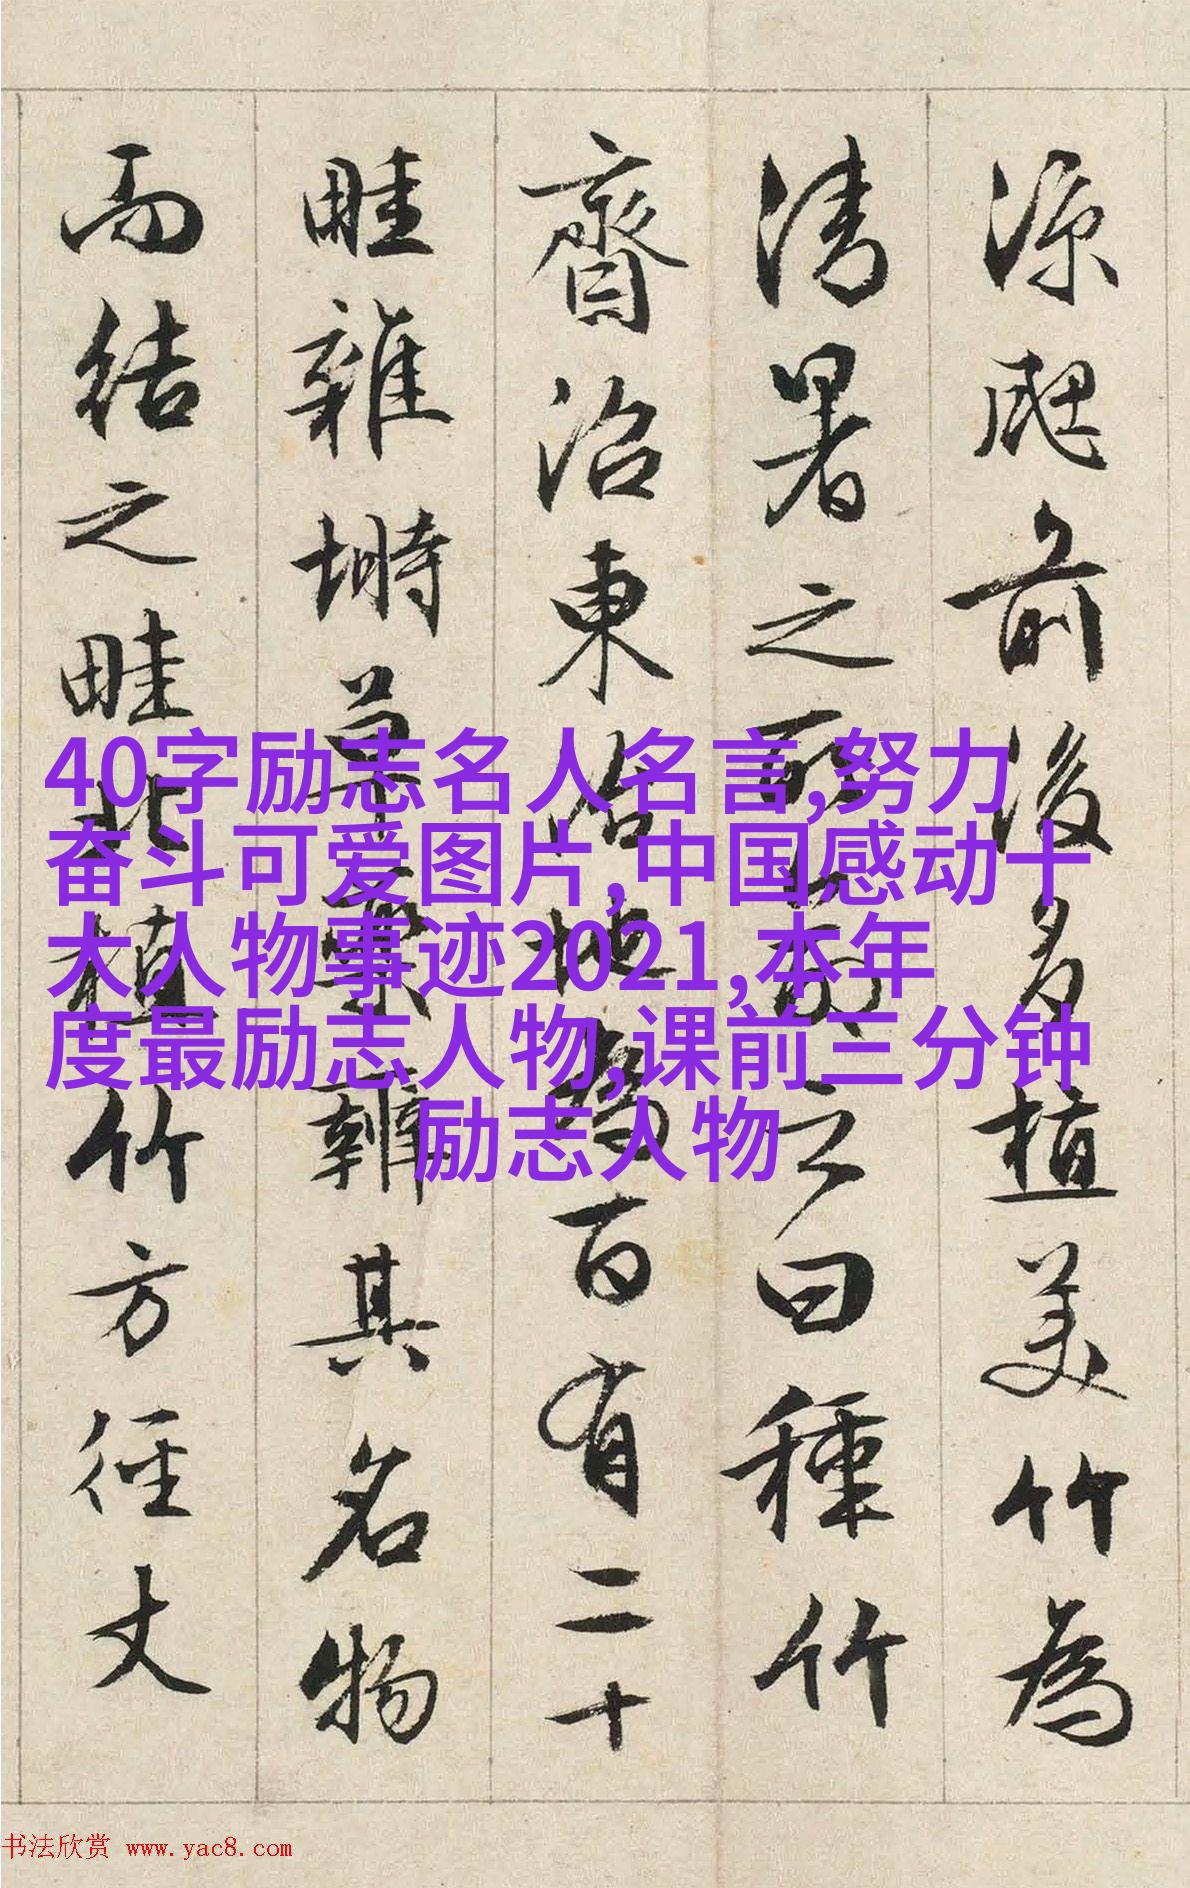 涼颸前後多植美竹為
清暑之所命之曰種竹
齋沼東治地為百有二十
畦雜塒草藥辨其名物
而結之畦北植竹方徑丈
40字励志名人名言,努力
奋斗可爱图片,中国感动十
大人物事迹2021,本年
度最励志人物,课前三分钟
励志人物
书法欣赏 www.yac8.com